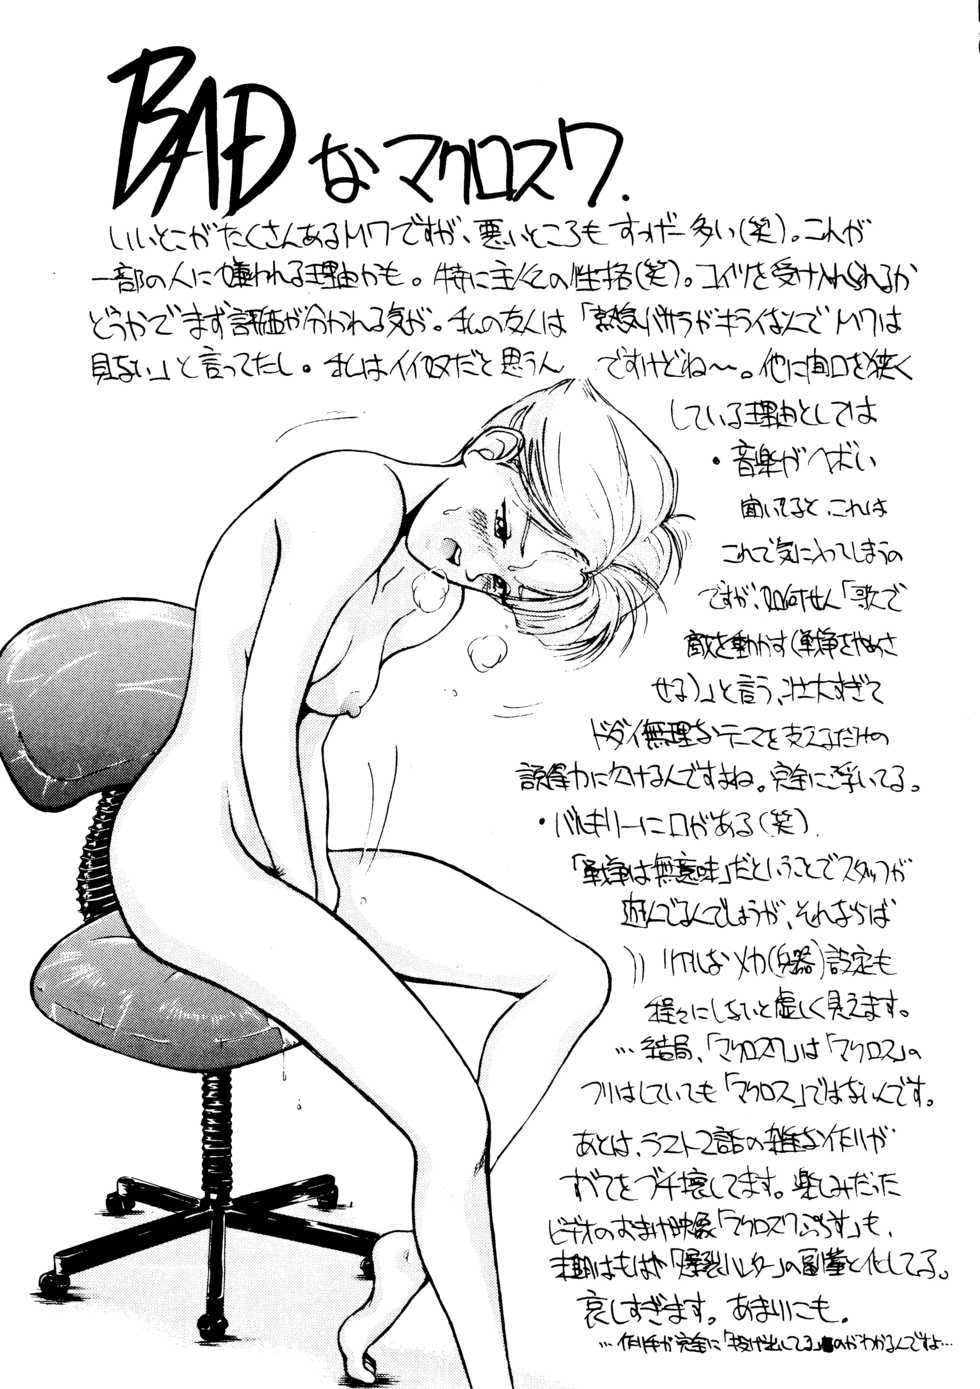 BADなマクロス7.
いいとこがたくさんあるM7ですが、悪いところもすっげー多い(笑)。これが
一部の人に嫌われる理由かも。特に主人公の性格(笑)。コイツを受け入れられるか
どうかでまず評価が分かれる気が。私の友人は「熱気バサラがキライなんでM7は
見ない」と言ってたし。私はイイ奴だと思うん ですけどね〜。他に間口を狭く
している理由としては
・音楽がヘボい
聞いてると、これは
これで気に入ってしまうの
ですが、如何せん「歌で
敵を動かす(戦争をやめさ
せる)」と言う、壮大すぎて
ドダイ無理なテーマを支えるだけの
説得力に欠けるんですよね。完全に浮いてる。
・バルキリーに口がある(笑)
「戦争は無意味」だということでスタッフが
遊んでるんでしょうが、それならば
リアルなメカ(兵器)設定も
程々にしないと虚しく見えます。
…結局、「マクロス7」は「マクロス」の
フリはしていても「マクロス」ではないんです。
あとは、ラスト2話の雑な作りが
すべてをブチ壊してます。楽しみだった
ビデオのおまけ映像「マクロス7ぷらす」も、
末期はもはや「爆裂ハンター」の副業と化してる。
哀しすぎます。あまりにも。
…作り手が完全に「投げ出してる」のがわかるんですよ…